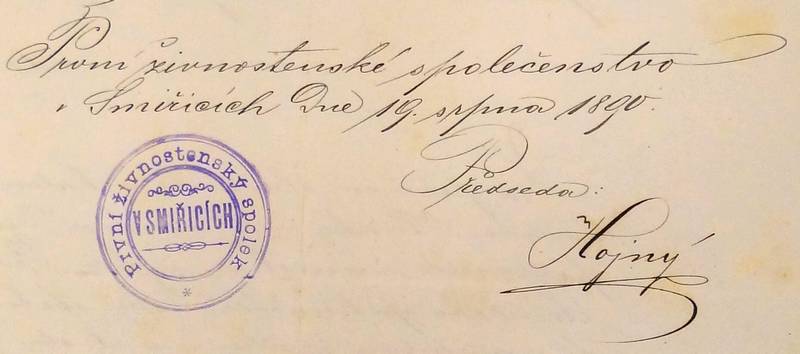 První živnostenské společenstvo
v Smiřicích Dne 19. srpna 1890.
Předseda:
Hojný
První živnostenský spolek
V SMIŘICÍCH